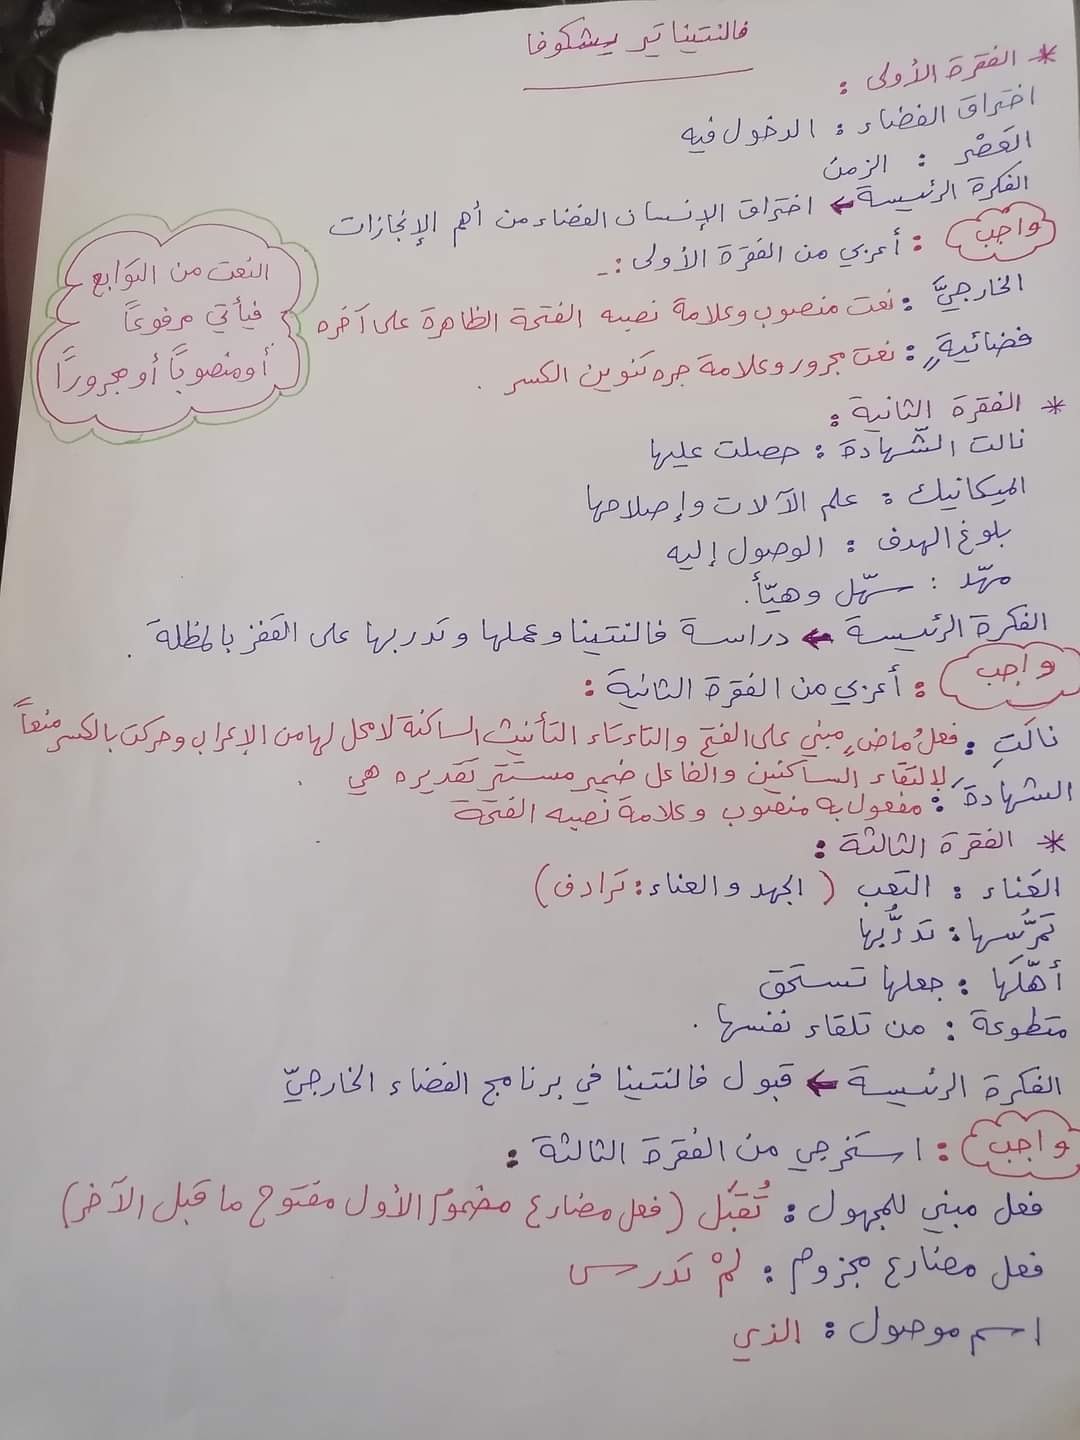 فالنتينا تيريشكوفا
* الفقرة الأولى :
اختراق الفضاء : الدخول فيه
العَصْر : الزمن
الفكرة الرئيسة ← اختراق الإنسان الفضاء من أهم الإنجازات
واجب : أعربي من الفقرة الأولى :-
الخارجيَّ : نعت منصوب وعلامة نصبه الفتحة الظاهرة على آخره
فضائيةٍ : نعت مجرور وعلامة جره تنوين الكسر .
النعت من التوابع
فيأتي مرفوعاً
أو منصوباً أو مجروراً
* الفقرة الثانية :
نالت الشّهادة : حصلت عليها
الميكانيك : علم الآلات وإصلاحها
بلوغ الهدف : الوصول إليه
مهّد : سهّل وهيّأ .
الفكرة الرئيسة ← دراسة فالنتينا وعملها وتدربها على القفز بالمظلة .
واجب : أعربي من الفقرة الثانية :
نالتِ : فعلُ ماضٍ مبني على الفتح والتاء تاء التأنيث الساكنة لا محل لها من الإعراب وحركت بالكسر منعاً
لإلتقاء الساكنين والفاعل ضمير مستتر تقديره هي .
الشهادةَ : مفعول به منصوب وعلامة نصبه الفتحة
* الفقرة الثالثة :
العَناء : التعب ( الجهد والعناء : ترادف )
تمرُّسها : تدرُّبها
أهّلَها : جعلها تستحق
متطوعة : من تلقاء نفسها .
الفكرة الرئيسة ← قبول فالنتينا في برنامج الفضاء الخارجيّ
واجب : استخرجي من الفقرة الثالثة :
فعل مبني للمجهول : تُقبَل ( فعل مضارع مضموم الأول مفتوح ما قبل الآخر )
فعل مضارع مجزوم : لمْ تدرس
اسم موصول : الذي